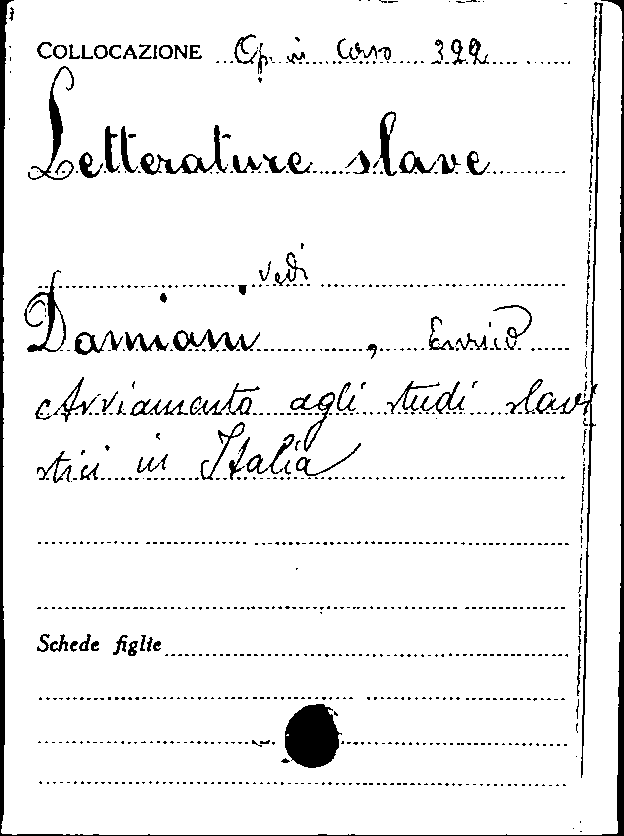 COLLOCAZIONE Op. in Corso 399
Letterature slave
vedi
Damiani, Enrico
Avviamento agli studi slavi
stici in Italia
Schede figlie